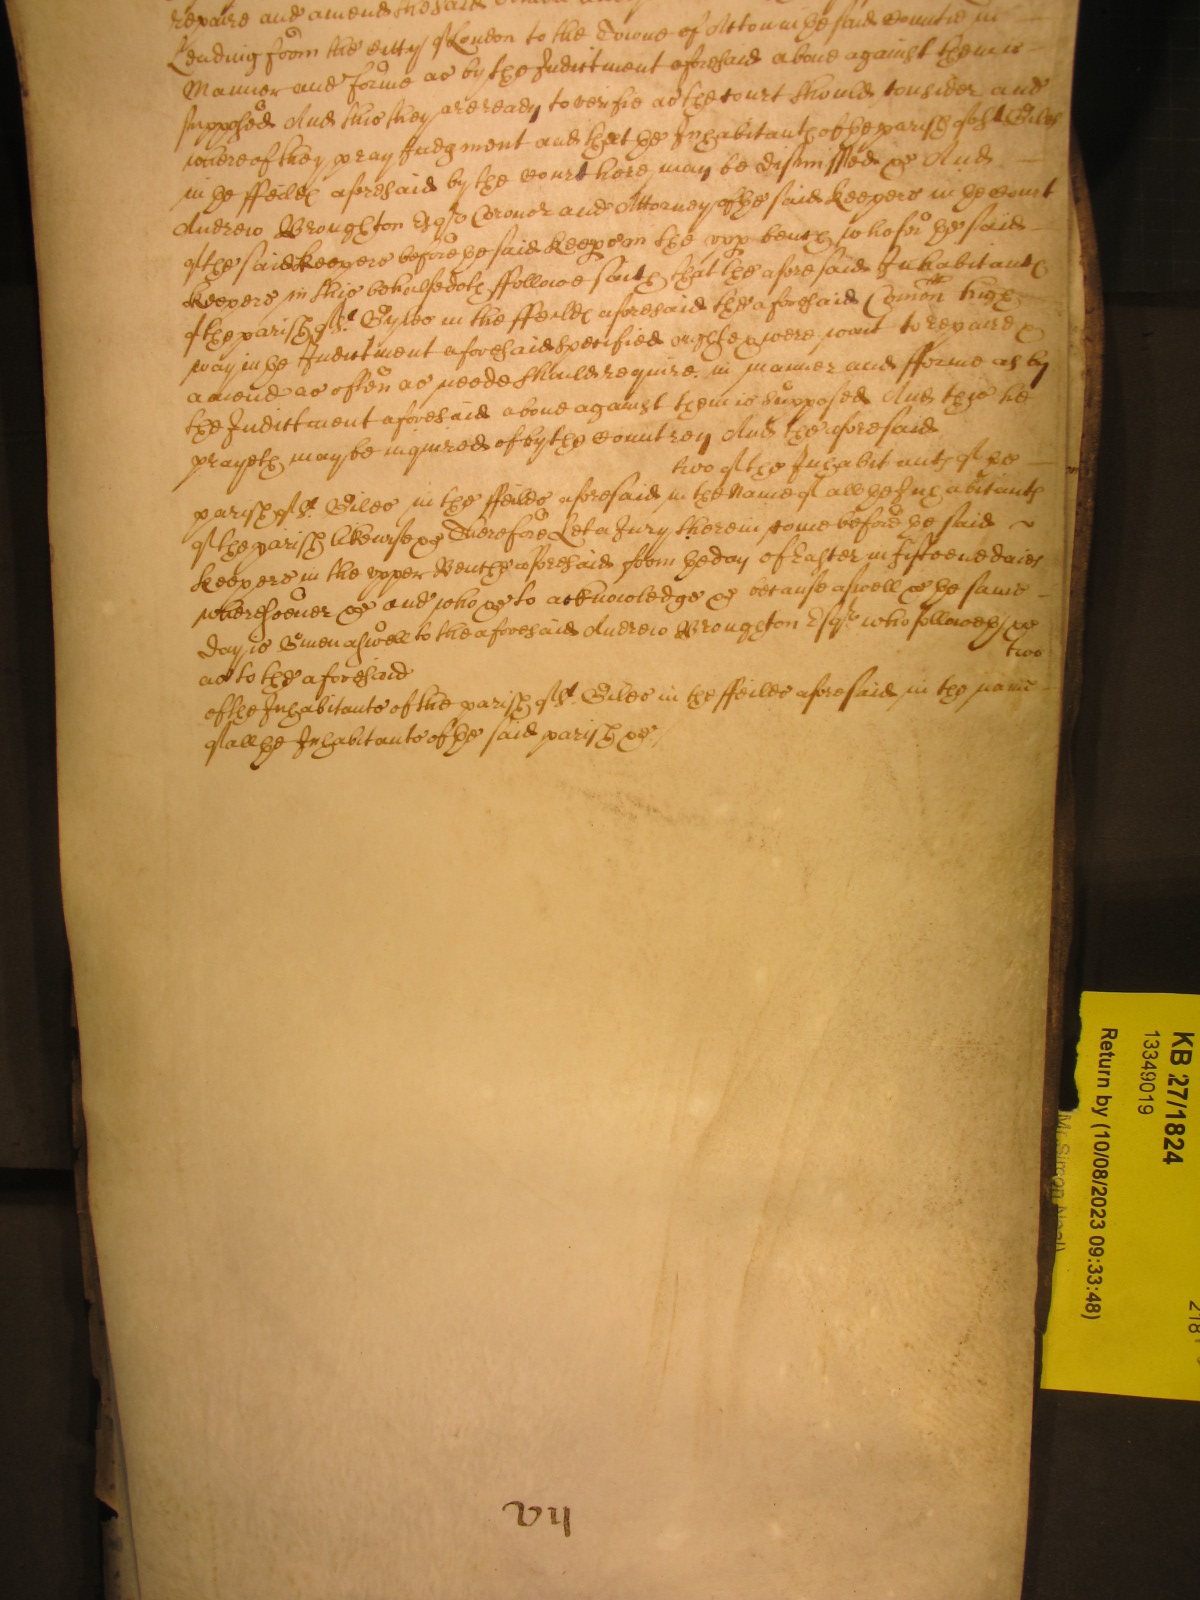 repaire and amend the said Comon
Leading from the Citty of London to the Towne of Acton in the said Countie in
Manner and forme as by the Indictment aforesaid above against them is
supposed And this they are ready to verifie as the Court should consider and
whereof they pray Judgment and that the Inhabitants of the parish of St. Giles
in the ffeilds aforesaid by the Court here may be dismissed &c And
Andrew Broughton Esqr Coroner and Attorney of the said Keepers in the Court
of the said Keepers before the said Keeps in the upp bench who for the said
Keepers in this behalfe doth ffollowe saith that the aforesaid Inhabitants
of the parish of St. Gyles in the ffeilds aforesaid the aforesaid Comon high
way in the Indictment aforesaid specified ought & were wont to repaire &
amend as often as neede should require in manner and fforme as by
the Indictment aforesaid above against them is supposed And this he
prayeth may be inquired of by the Countrey And the aforesaid
two of the Inhabitants of the
parish of St. Giles in the ffeilds aforesaid in the Name of all the Inhabitants
of the parish likewise &c Therefore Let a Jury therein come before the said
Keepers in the upper Bench aforesaid from the day of Easter in fifteene daies
wheresoever &c and who &c to acknowledge &c because aswell &c the same
day is Given aswell to the aforesaid Andrew Broughton Esqr. who followeth &c
as to the aforesaid two
of the Inhabitants of the parish of St. Giles in the ffeilds aforesaid in the name
of all the Inhabitants of the said parish &c
KB 27/1824
13349019
Return by (10/08/2023 09:33:48)